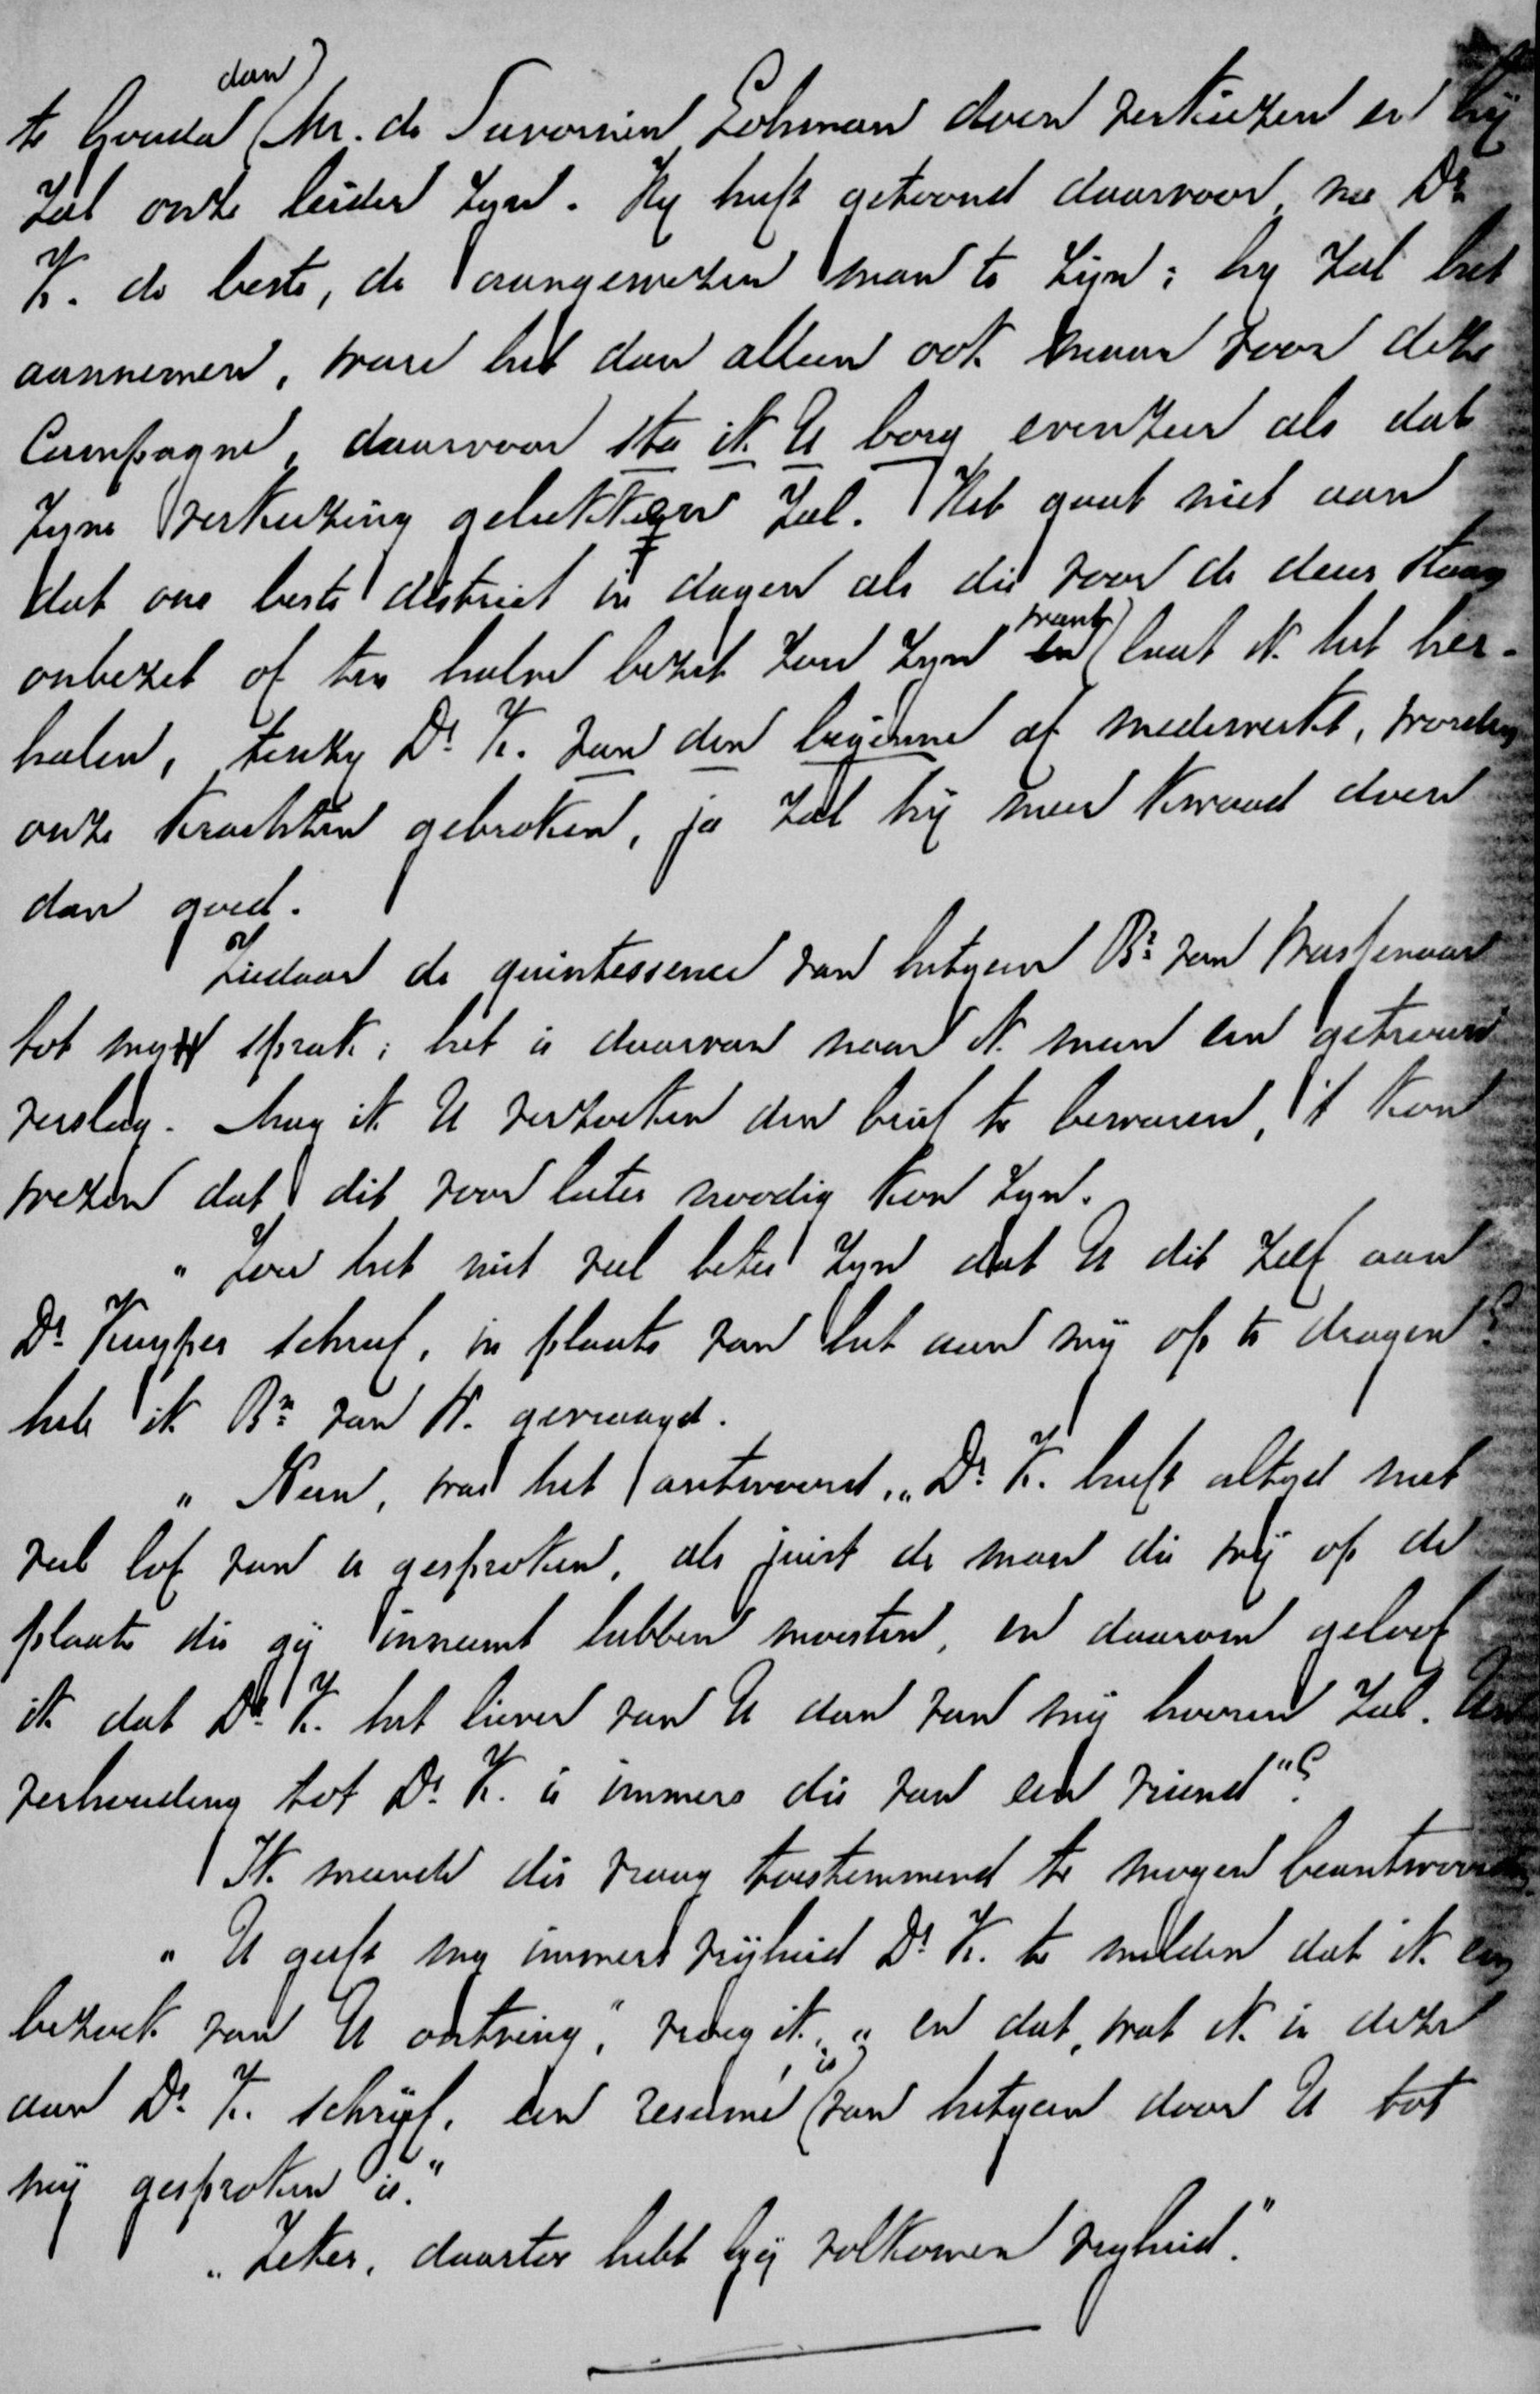 te Gouda (dan) Mr. de Savornin Lohman doen verkiezen en hij
zal onze leider zyn. Hy heeft getoond daarvoor, na Dr.
K. de beste, de aangewezen man te zijn; hy zal het
aannemen, ware het dan alleen ook maar voor deze
Campagne, daarvoor sta ik U borg evenzeer als dat
zyne verkiezing gelukken zal. Het gaat niet aan
dat ons beste district in dagen als die voor de deur staan
onbezet of ten halve bezet zou zyn want) laat ik het her-
halen, tenzy Dr. K. van den beginne af medewerkt, worden
onze krachten gebroken, ja zal hij meer kwaad doen
dan goed.
Ziedaar de quintessence van hetgeen Bn. van Wassenaar
tot my sprak; het is daarvan naar ik meen een getrouw
verslag. Mag ik U verzoeken den brief te bewaren, 't kon
wezen dat dit voor later noodig kon zyn.
"Zou het niet veel beter zyn dat U dit zelf aan
Dr. Kuyper schreef, in plaats van het aan mij op te dragen?
heb ik Bn. van W. gevraagd.
"Neen, was het antwoord, "Dr. K. heeft altyd met
veel lof van u gesproken, als juist de man die wij op de
plaats die gij inneemt hebben moesten, en daarom geloof
ik dat Dr. K. het liever van U dan van mij hooren zal. Uw
verhouding tot Dr. K. is immers die van een vriend"?
Ik meende die vraag toestemmend te mogen beantwoorden.
"U geeft my immers vrijheid Dr. K. te melden dat ik een
bezoek van U ontving," vroeg ik, "en dat, wat ik in deze
aan Dr. K. schrijf, een resumé (is) van hetgeen door U tot
mij gesproken is."
"Zeker, daartoe hebt Gij volkomen vryheid."